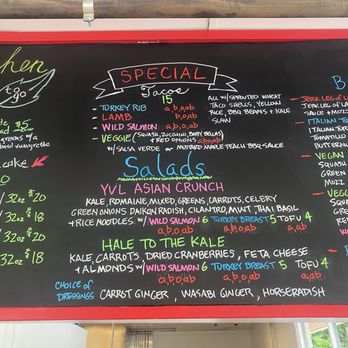 chen
to go
SPECIAL
Tacos
15
TURKEY RIB a,b,o,ab
LAMB b,o
WILD SALMON a,b,o,ab
VEGGIE (SQUASH, ZUCCHINI, BABY BELLAS + RED ONIONS)
W/ SALSA VERDE OR MUSTARD MAPLE TEACH BBQ SAUCE
ALL W/ SPROUTED WHEAT
TACO SHELLS, YELLOW
RICE, BBQ BEANS + KALE
SLAW
Salads
YVL ASIAN CRUNCH
KALE, ROMAINE, MIXED GREENS, CARROTS, CELERY
GREEN ONIONS DAIKON RADISH, CILANTRO, MINT, THAI BASIL
+ RICE NOODLES W/ WILD SALMON 6 TURKEY BREAST 5 TOFU 4
a,b,o,ab a,b,o,ab
HALE TO THE KALE
KALE, CARROTS, DRIED CRANBERRIES, FETA CHEESE
+ ALMONDS W/ WILD SALMON 6 TURKEY BREAST 5 TOFU 4
a,b,o,ab a,b,o,ab
CHOICE OF
DRESSINGS CARROT GINGER, WASABI GINGER, HORSERADISH
cake
32oz $20
32oz $18
32oz $20
32oz $18
B
JERK LEG OF
ITALIAN
VEGAN
SQUASH
GREEN
MOZZ
VEGGIE